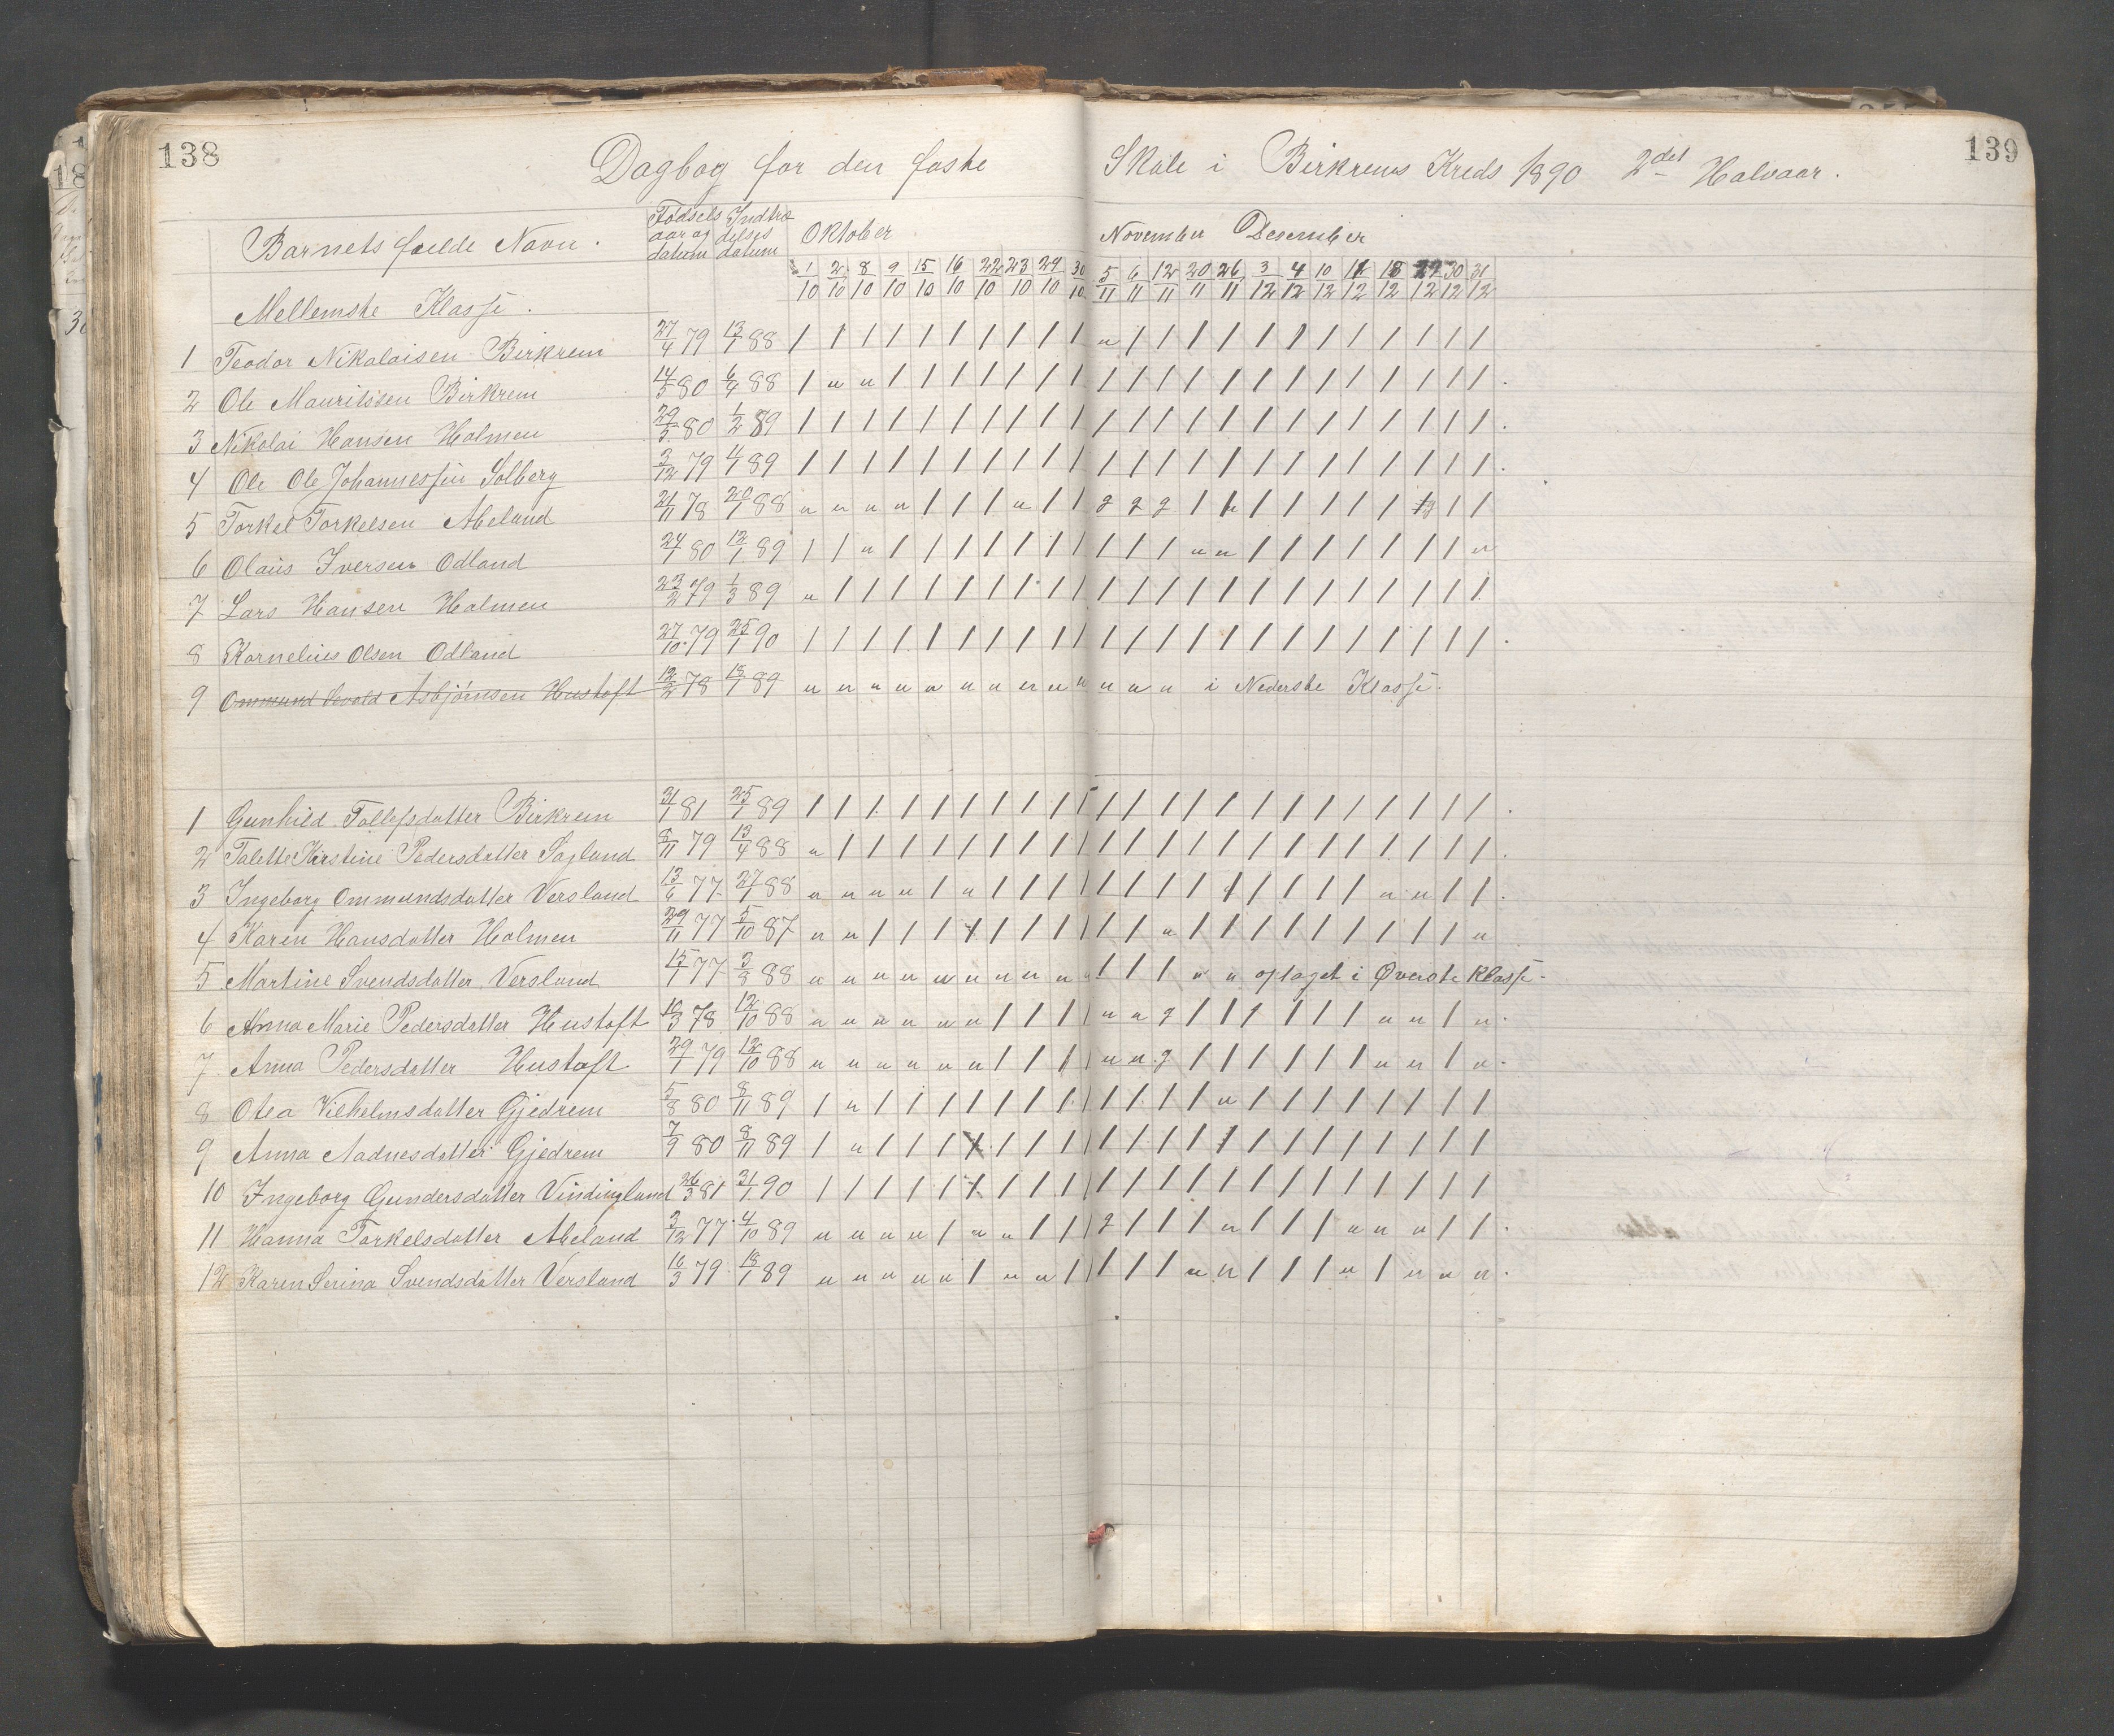 138
139
Dagbog for den faste Skole i Birkrems Kreds 1890 2det Halvaar.
Barnets fulde Navn.
Fødsels aar og datum
Indtrædelses datum
Oktober
November Desember
1/10 2/10 8/10 9/10 15/10 16/10 22/10 23/10 29/10 30/10 5/11 6/11 12/11 20/11 26/11 3/12 4/12 10/12 11/12 18/12 29/12 30/12 31/12
Mellemste Klasse.
1 Teodor Nikolaisen Birkrem 27/4 79 13/1 88 / / / / / / / / / / u / / / / / / / / / / / /
2 Ole Mauritssen Birkrem 14/5 80 6/4 88 / u u / / / / / / / / / / / / / / / / / / / /
3 Nikolai Hansen Holmen 29/5 80 1/2 89 / / / / / / / / / / / / / / / / / / / / / / /
4 Ole Ole Johannessen Solberg 3/12 79 4/1 89 / / / / / / / / / / / / / / / / / / / / / / /
5 Torkel Torkelsen Abeland 21/11 78 20/1 88 u u u u / / / u / / g g g / / / / / / / g / /
6 Olaus Iversen Odland 24/1 80 12/1 89 / / u / / / / / / / / / / u u / / / / / / / u
7 Lars Hansen Holmen 23/2 79 1/3 89 u / / / / / / / / / / / / / / / / / / / / / /
8 Kornelius Olsen Odland 27/10 79 25/1 90 / / / / / / / / / / / / / / / / / / / / / / /
9 Ommund Asbjørnsen Hustoft 12/2 78 18/1 89 u u u u u u u u u u u u u i Nederste Klasse.
1 Gunhild Tollefsdatter Birkrem 31/1 81 25/1 89 / / / / / / / / / / / / / / / / / / / / / / /
2 Talette Kirstine Pedersdatter Sagland 8/11 79 13/4 88 u / / / / / / / / / / / / / / / / / / / / / /
3 Ingeborg Ommundsdatter Versland 13/6 77 27/1 88 u u u u / u / / / / / / / / / / / / / u u / /
4 Karen Hansdatter Holmen 29/11 77 5/10 87 u u / / / / / / / / / / u / / / / / / / / / u
5 Martine Svendsdatter Versland 15/1 77 3/3 88 u u u u u u u u u u / / / u u optaget i Øverste Klasse.
6 Anna Marie Pedersdatter Hustoft 10/3 78 12/10 88 u u u u u u / / / / u u g / / / / / / u u / u
7 Anna Pedersdatter Hustoft 29/1 79 12/10 88 u u u u u u / / / / u u g / / / / / / u u / u
8 Otea Vilhelmsdatter Gjedrem 5/8 80 8/11 89 / u / / / / / / / / / / / / u / / / / / / / /
9 Anna Aadnesdatter Gjedrem 7/9 80 8/11 89 / u / / / / / / / / / / / / / / / / / / / / /
10 Ingeborg Gundersdatter Vindingland 26/3 81 31/1 90 / / / / / / / / / / / / / / / / / / / / / / /
11 Hanna Torkelsdatter Abeland 3/12 77 4/10 89 u u u u / u u / / / g / / / u / / / u u u / /
12 Karen Serina Svendsdatter Versland 16/3 79 18/1 89 u u u u u / u u / / / / / u u / / / u / u u u